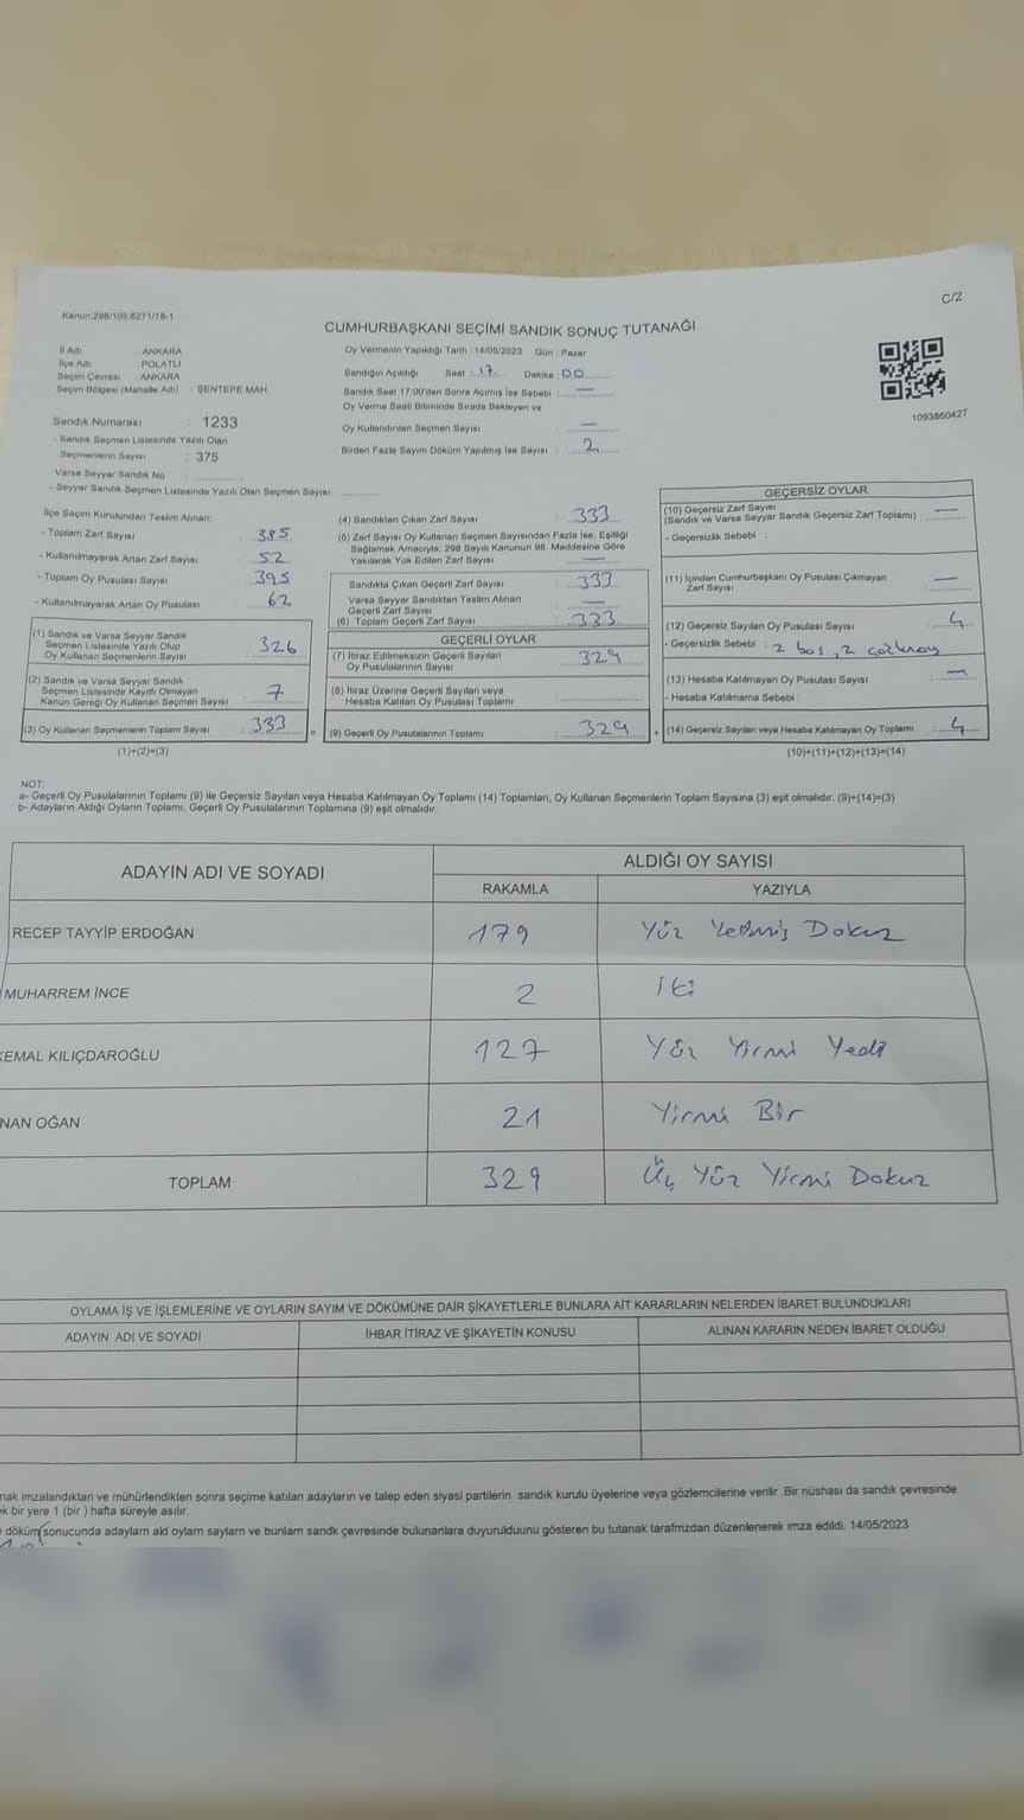 Kanun:298/105.6271/18-1
C/2
CUMHURBAŞKANI SEÇİMİ SANDIK SONUÇ TUTANAĞI
İl Adı ANKARA
İlçe Adı POLATLI
Seçim Çevresi ANKARA
Seçim Bölgesi (Mahalle Adı) : ŞENTEPE MAH.
Oy Vermenin Yapıldığı Tarih : 14/05/2023 Gün : Pazar
Sandığın Açıldığı Saat : 17 Dakika : 00
Sandık Saat 17:00'den Sonra Açılmış İse Sebebi : —
Oy Verme Saati Bitiminde Sırada Bekleyen ve
Oy Kullandırılan Seçmen Sayısı —
Birden Fazla Sayım Döküm Yapılmış İse Sayısı : 2
1093860427
Sandık Numarası : 1233
- Sandık Seçmen Listesinde Yazılı Olan
Seçmenlerin Sayısı : 375
Varsa Seyyar Sandık No
- Seyyar Sandık Seçmen Listesinde Yazılı Olan Seçmen Sayısı
İlçe Seçim Kurulundan Teslim Alınan:
- Toplam Zarf Sayısı 385
- Kullanılmayarak Artan Zarf Sayısı 52
- Toplam Oy Pusulası Sayısı 395
- Kullanılmayarak Artan Oy Pusulası 62
(1) Sandık ve Varsa Seyyar Sandık
Seçmen Listesinde Yazılı Olup
Oy Kullanan Seçmenlerin Sayısı 326
(2) Sandık ve Varsa Seyyar Sandık
Seçmen Listesinde Kayıtlı Olmayan
Kanun Gereği Oy Kullanan Seçmen Sayısı 7
(3) Oy Kullanan Seçmenlerin Toplam Sayısı 333
(1)+(2)=(3)
(4) Sandıktan Çıkan Zarf Sayısı 333
Zarf Sayısı Oy Kullanan Seçmen Sayısından Fazla İse, Eşitliği
Sağlamak Amacıyla, 298 Sayılı Kanunun 98. Maddesine Göre
Yakılarak Yok Edilen Zarf Sayısı —
Sandıkta Çıkan Geçerli Zarf Sayısı 333
Varsa Seyyar Sandıktan Teslim Alınan
Geçerli Zarf Sayısı —
(6) Toplam Geçerli Zarf Sayısı 333
GEÇERLİ OYLAR
(7) İtiraz Edilmeksizin Geçerli Sayılan
Oy Pusulalarının Sayısı 329
(8) İtiraz Üzerine Geçerli Sayılan veya
Hesaba Katılan Oy Pusulası Toplamı
= (9) Geçerli Oy Pusulalarının Toplamı 329
GEÇERSİZ OYLAR
(10) Geçersiz Zarf Sayısı
(Sandık ve Varsa Seyyar Sandık Geçersiz Zarf Toplamı) —
- Geçersizlik Sebebi :
(11) İçinden Cumhurbaşkanı Oy Pusulası Çıkmayan
Zarf Sayısı —
(12) Geçersiz Sayılan Oy Pusulası Sayısı 4
- Geçersizlik Sebebi : 2 boş, 2
(13) Hesaba Katılmayan Oy Pusulası Sayısı —
- Hesaba Katılmama Sebebi :
+ (14) Geçersiz Sayılan veya Hesaba Katılmayan Oy Toplamı 4
(10)+(11)+(12)+(13)=(14)
NOT:
a- Geçerli Oy Pusulalarının Toplamı (9) ile Geçersiz Sayılan veya Hesaba Katılmayan Oy Toplamı (14) Toplamları, Oy Kullanan Seçmenlerin Toplam Sayısına (3) eşit olmalıdır. (9)+(14)=(3)
b- Adayların Aldığı Oyların Toplamı, Geçerli Oy Pusulalarının Toplamına (9) eşit olmalıdır.
ADAYIN ADI VE SOYADI
ALDIĞI OY SAYISI
RAKAMLA YAZIYLA
RECEP TAYYİP ERDOĞAN 179 Yüz Yetmiş Dokuz
MUHARREM İNCE 2 İki
KEMAL KILIÇDAROĞLU 127 Yüz Yirmi Yedi
NAN OĞAN 21 Yirmi Bir
TOPLAM 329 Üç Yüz Yirmi Dokuz
OYLAMA İŞ VE İŞLEMLERİNE VE OYLARIN SAYIM VE DÖKÜMÜNE DAİR ŞİKAYETLERLE BUNLARA AİT KARARLARIN NELERDEN İBARET BULUNDUKLARI
ADAYIN ADI VE SOYADI İHBAR İTİRAZ VE ŞİKAYETİN KONUSU ALINAN KARARIN NEDEN İBARET OLDUĞU
nak imzalandıktan ve mühürlendikten sonra seçime katılan adayların ve talep eden siyasi partilerin sandık kurulu üyelerine veya gözlemcilerine verilir. Bir nüshası da sandık çevresinde
k bir yere 1 (bir) hafta süreyle asılır.
döküm sonucunda adayların ald oyların sayıları ve bunların sandk çevresinde bulunanlara duyurulduunu gösteren bu tutanak tarafmzdan düzenlenerek imza edildi. 14/05/2023